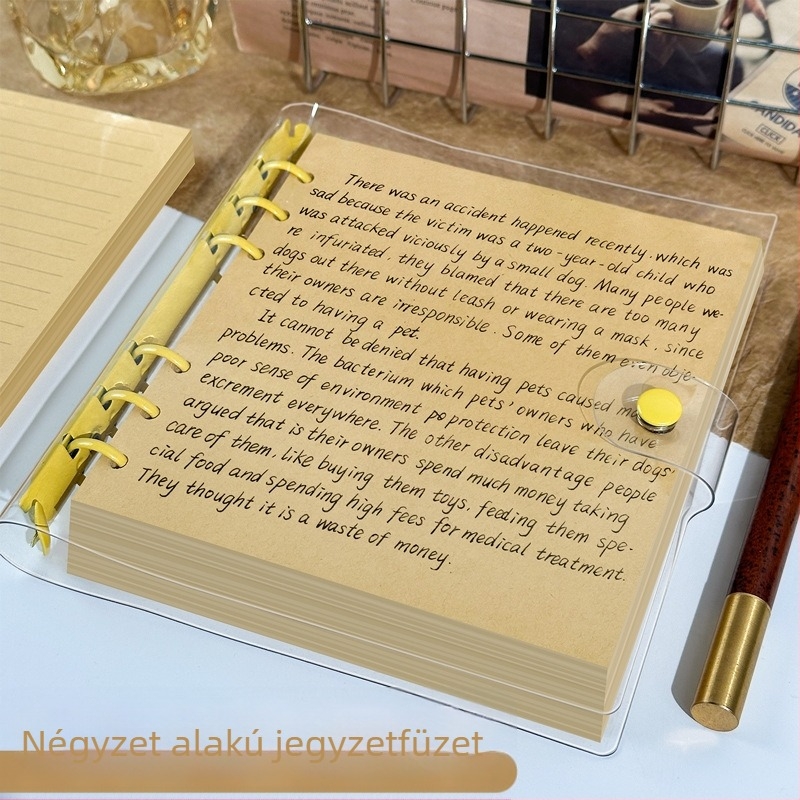 CANDIDA
CLICK
There was an accident happened recently, which was
sad because the victim was a two-year-old child who
was attacked viciously by a small dog. Many people we-
re infuriated, they blamed that there are too many
dogs out there without leash or wearing a mask, since
their owners are irresponsible. Some of them even obje-
cted to having a pet.
It cannot be denied that having pets caused
problems. The bacterium which pets' owners who have
poor sense of environment protection leave their dogs'
excrement everywhere. The other disadvantage people
argued that is their owners spend much money taking
care of them, like buying them toys, feeding them spe-
cial food and spending high fees for medical treatment.
They thought it is a waste of money.
Négyzet alakú jegyzetfüzet